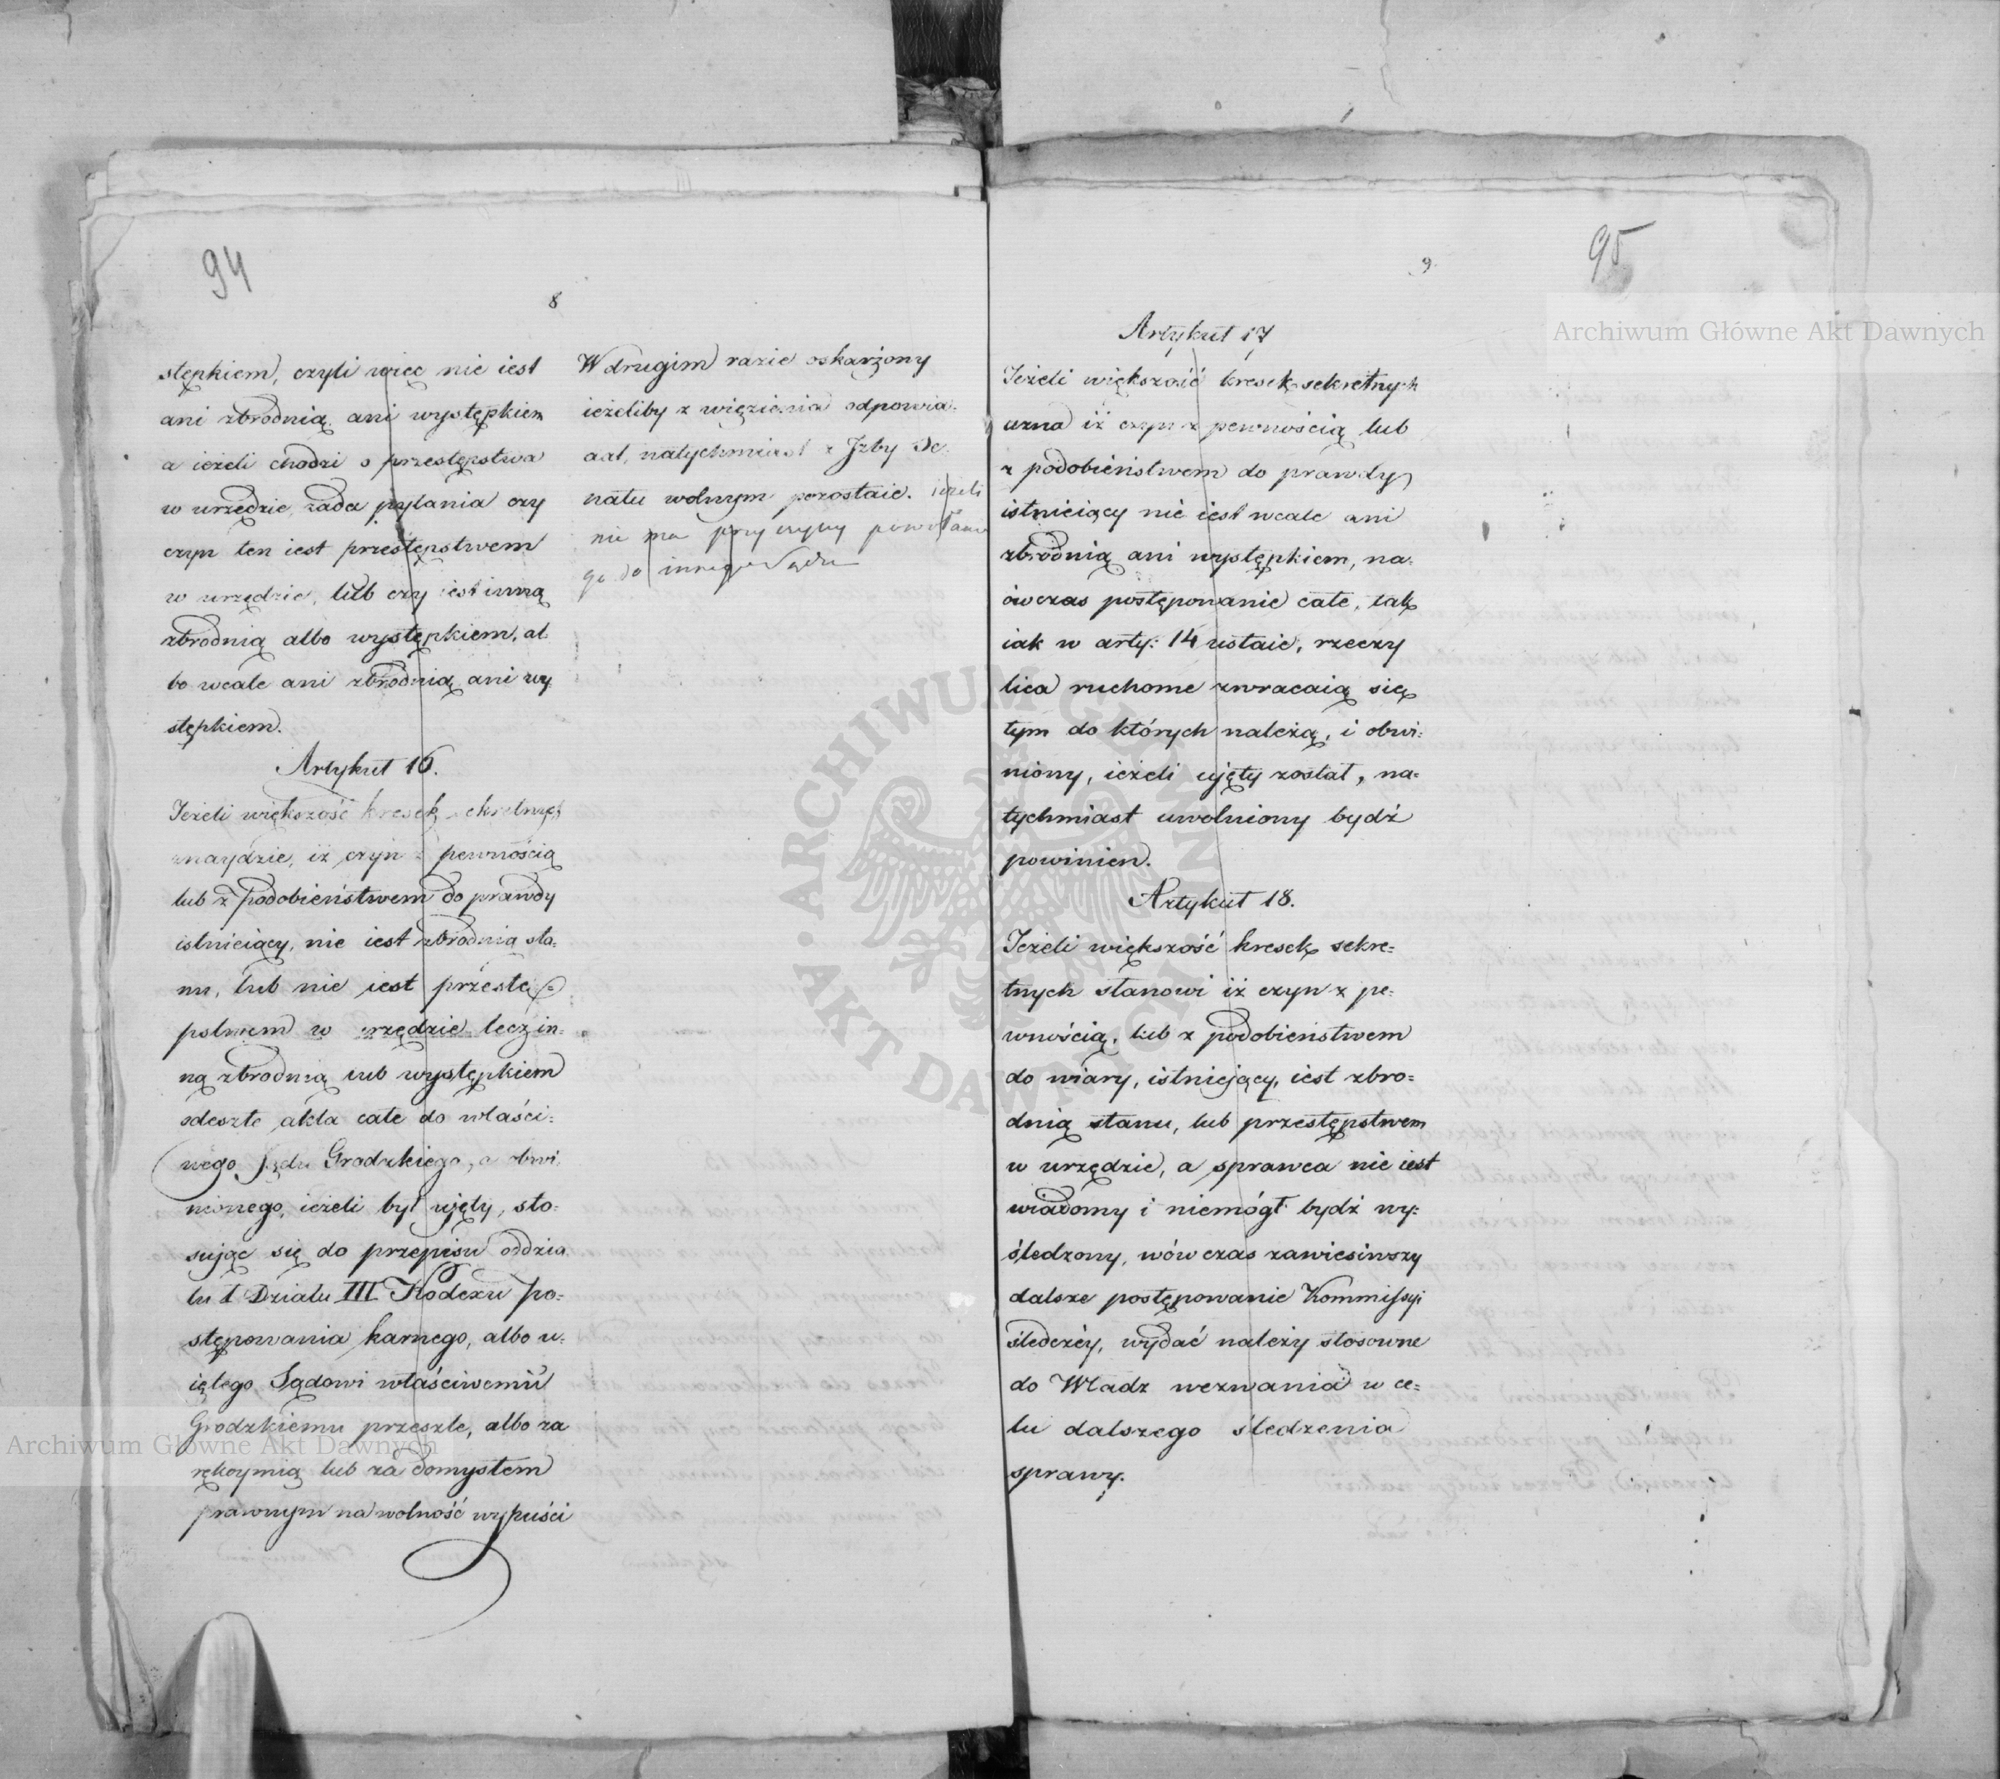 94
8
stępkiem, czyli więc nie iest
ani zbrodnią ani występkiem
a ieżeli chodzi o przestępstwa
w urzędzie, zada pytania czy
czyn ten iest przestępstwem
w urzędzie, lub czy iest inną
zbrodnią albo występkiem, al
bo wcale ani zbrodnią ani wy
stępkiem.
Artykuł 16.
Ieżeli większość kresek sekretnych
znaydzie, iż czyn z pewnością
lub z podobieństwem do prawdy
istnieiący, nie iest zbrodnią sta=
nu, lub nie iest przestę=
pstwem w urzędzie lecz in=
ną zbrodnią lub występkiem
odeszle akta całe do właści=
wego Sądu Grodzkiego, a obwi
nionego, ieżeli był uięty, sto=
sując się do przepisu oddzia
łu 1 Działu III Kodexu po=
stępowania karnego, albo u=
iętego Sądowi właściwemu
Grodzkiemu przeszle, albo za
rękoymią lub za domysłem
prawnym na wolność wypuści
W drugim razie oskarżony
ieżeliby z więzienia odpowia=
dał, natychmiast z Jzby Se
natu wolnym pozostaie. ieżeli
nie ma przyczyny powołania
go do innego Sądu
95
9.
Artykuł 17
Ieżeli większość kresek sekretnych
uzna iż czyn z pewnością lub
z podobieństwem do prawdy
istnieiący nie iest wcale ani
zbrodnią ani występkiem, na=
ówczas postępowanie całe, tak
iak w arty: 14 ustaie, rzeczy
lica ruchome zwracaią się
tym do których należą, i obwi=
niony, ieżeli ujęty został, na=
tychmiast uwolniony bydź
powinien.
Artykuł 18.
Ieżeli większość kresek sekre=
tnych stanowi iż czyn z pe=
wnością, lub z podobieństwem
do wiary, istniejący, iest zbro=
dnią stanu, lub przestępstwem
w urzędzie, a sprawca nie iest
wiadomy i niemógł bydź wy=
śledzony, wówczas zawiesiwszy
dalsze postępowanie Kommissyi
śledczéy, wydać należy stosowne
do Władz wezwania w ce=
lu dalszego śledzenia
sprawy.
Archiwum Główne Akt Dawnych
Archiwum Główne Akt Dawnych
ARCHIWUM GŁÓWNE
AKT DAWNYCH